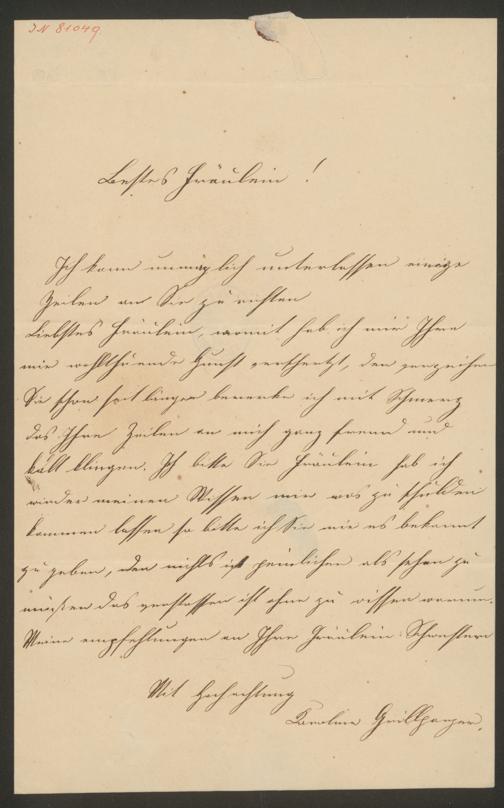 JN 81049
Bestes Fräulein !
Ich kann unmöglich unterlassen einige
Zeilen an Sie zu richten
Liebstes Fräulein, womit hab ich mir Ihre
mir wohlthuende Gunst verscherzt, den verzeihen
Sie schon seit langen bemerke ich mit Schmerz
das Ihre Zeilen an mich ganz fremd und
kalt klingen. Ich bitte Sie Fräulein hab ich
wieder meinen Wissen mir was zu schulden
kommen lassen so bitte ich Sie mir es bekannt
zu geben, den nichts ist peinlicher als sehen zu
müssen das verstossen ist ohne zu wissen warum.
Meine empfehlungen an Ihre Fräulein Schwestern
Mit Hochachtung
Karoline Grillparzer,